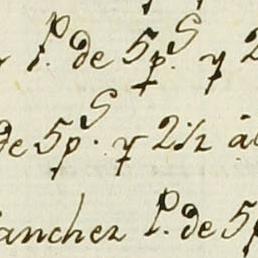 P. de 5p.s y 2
de 5p.s y 2½ á
anchez P. de 5p